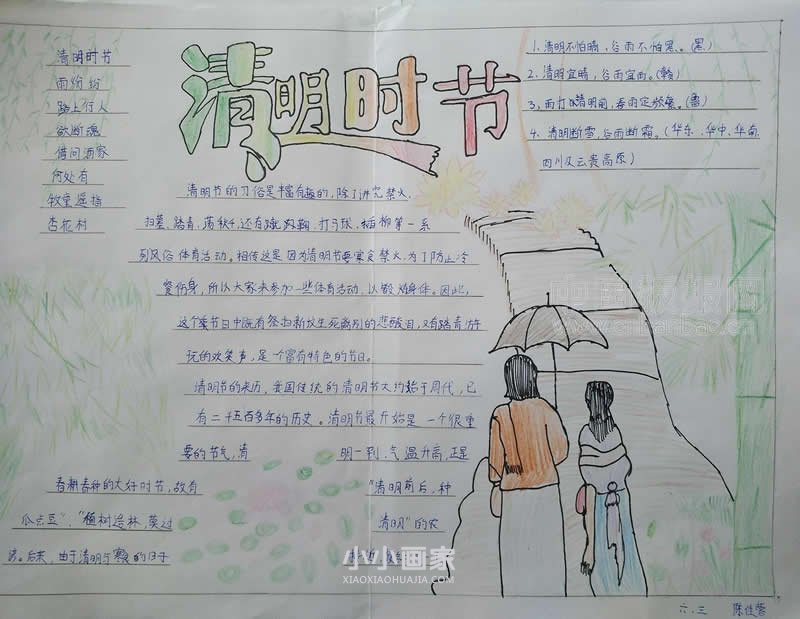 清明时节
清明时节
雨纷纷
路上行人
欲断魂
借问酒家
何处有
牧童遥指
杏花村
1.清明不怕晴，谷雨不怕黑。(黑)
2.清明宜晴，谷雨宜雨。(赣)
3.雨打清明前，春雨定频繁。(鲁)
4.清明断雪，谷雨断霜。(华东、华中、华南
四川及云贵高原)
清明节的习俗是丰富有趣的，除了讲究禁火，
扫墓、踏青、荡秋千，还有蹴鞠，打马球、插柳等一系
列风俗体育活动。相传这是因为清明节要寒食禁火，为了防止冷
餐伤身，所以大家来参加一些体育活动，以锻炼身体。因此，
这个节日中既有祭扫新坟生死离别的悲酸泪，又有踏青游
玩的欢笑声，是一个富有特色的节日。
清明节的来历，我国传统的清明节大约始于周代，已
有二千五百多年的历史。清明节最开始是一个很重
要的节气，清 明一到，气温升高，正是
春耕春种的大好时节，故有 "清明前后，种
瓜点豆"、"植树造林，莫过 清明"的农
谚。后来，由于清明与 的日子
小小画家
XIAOXIAOHUAJIA.COM
六.三 陈佳